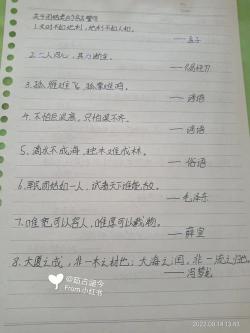 关于团结友爱的名人警句
1.天时不如地利,地利不如人和。
——孟子
2.二人同心,其力断金。
——《易经》
3.孤雁难飞,孤掌难鸣。
——谚语
4.不怕巨浪高,只怕桨不齐。
——谚语
5.滴水不成海,独木难成林。
——俗语
6.军民团结如一人,试看天下谁能敌。
——毛泽东
7.唯宽可以容人,唯厚可以载物。
——薛宣
8.大厦之成,非一木之材也;大海之润,非一流之归也。
——冯梦龙
@茹古涵今
From 小红书
2022.09.14 13:51